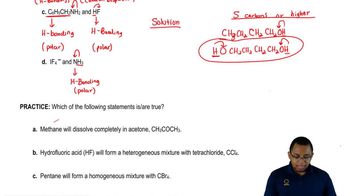 (H-Bonding)
c. C₆H₅CH₂NH₂ and HF
H-bonding H-Bonding
(polar) (polar)
d. IF₄⁻ and NH₃
H-Bonding
(polar)
Solution
5 carbons or higher
CH₃CH₂CH₂CH₂OH
HOCH₂CH₂CH₂CH₂OH
PRACTICE: Which of the following statements is/are true?
a. Methane will dissolve completely in acetone, CH₃COCH₃.
b. Hydrofluoric acid (HF) will form a heterogeneous mixture with tetrachloride, CCl₄.
c. Pentane will form a homogeneous mixture with CBr₄.